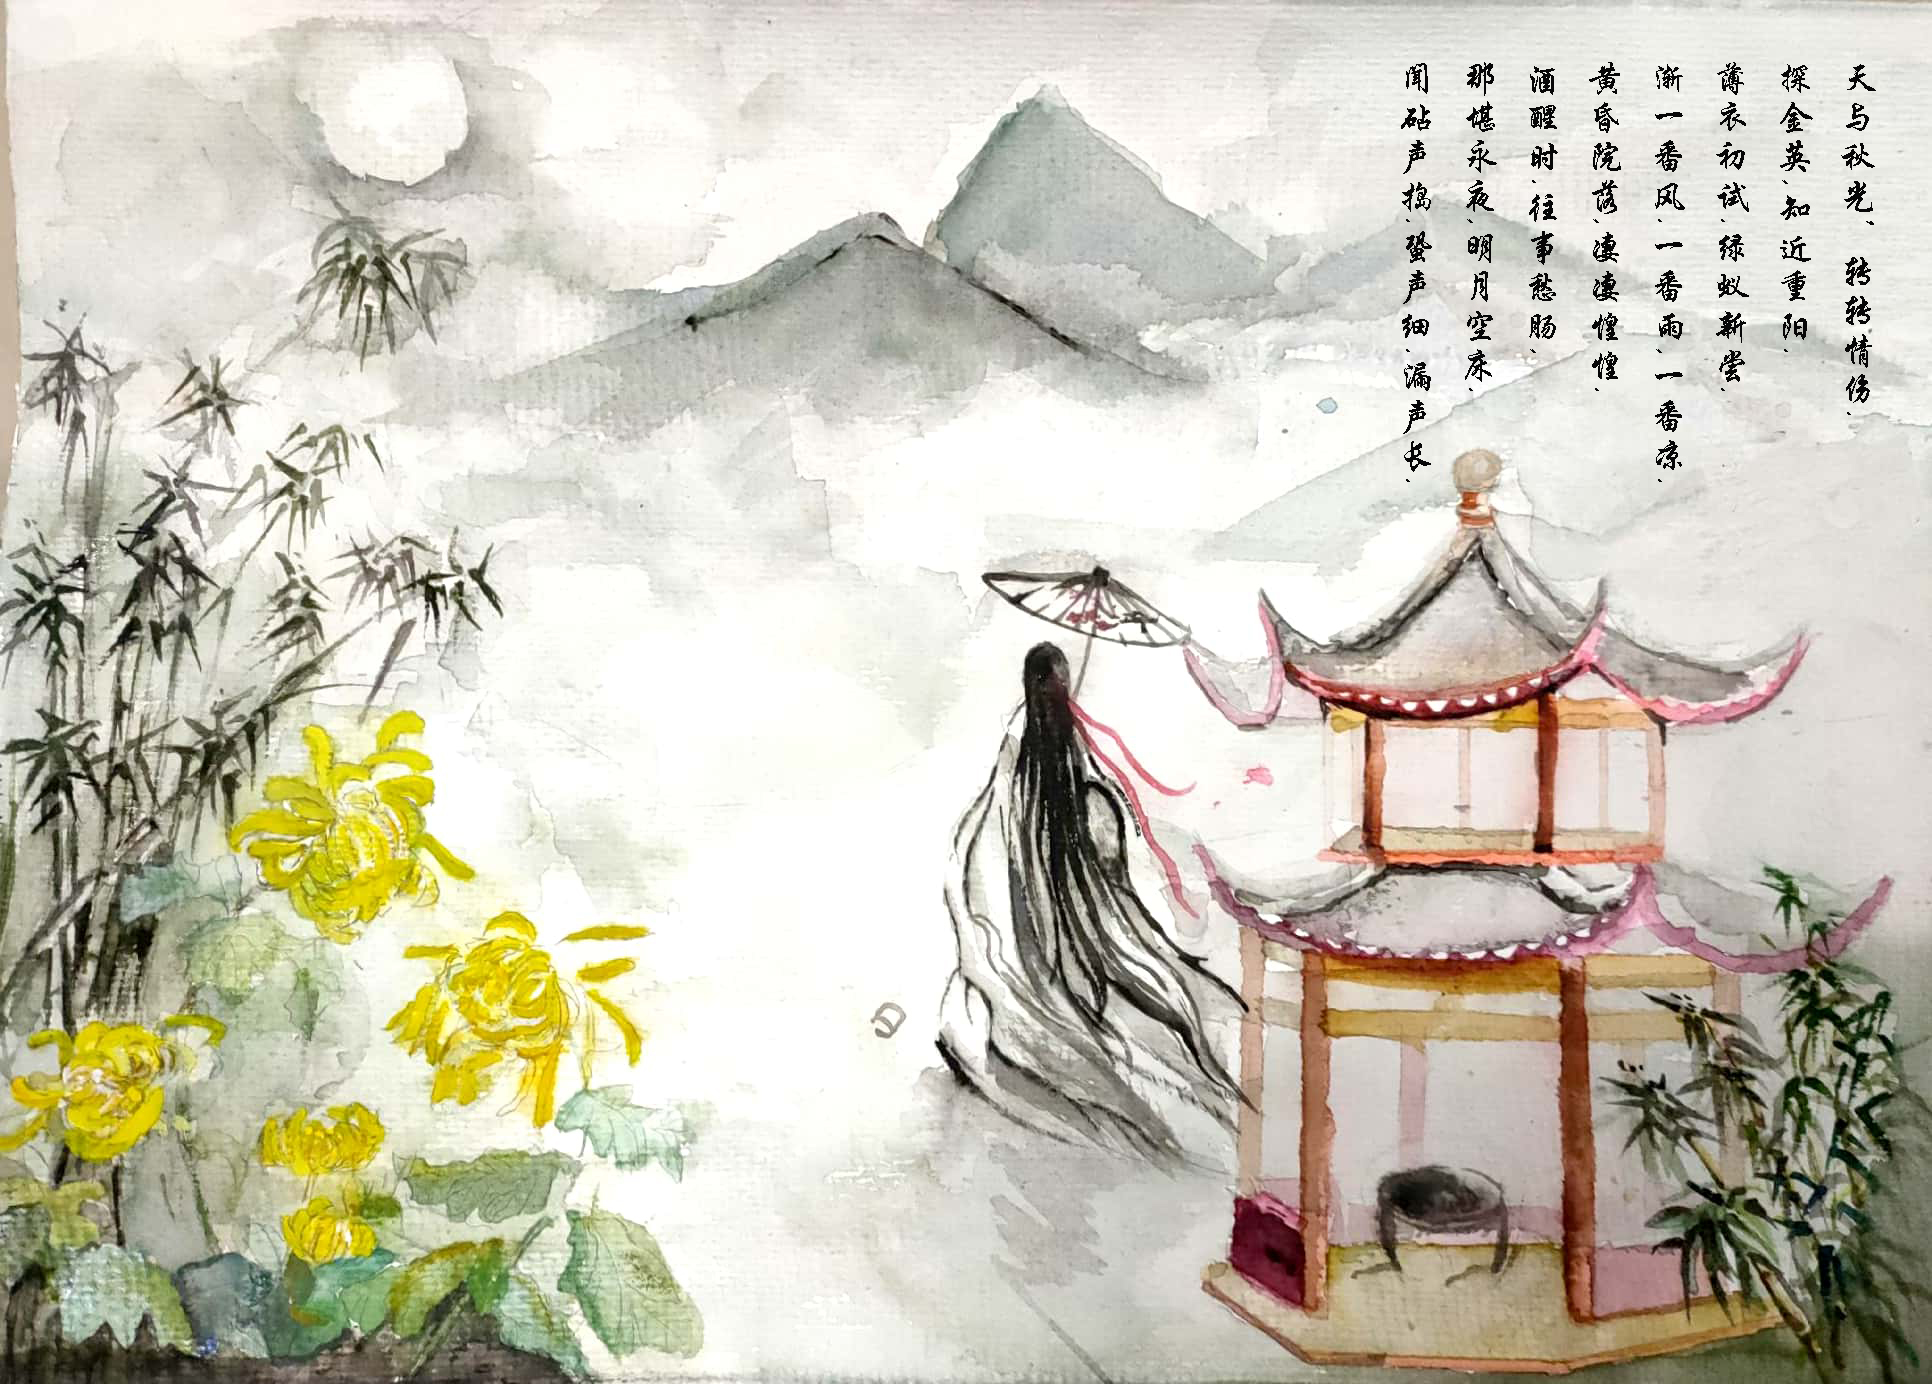 天与秋光、转转情伤、
探金英、知近重阳、
薄衣初试、绿蚁新尝、
渐一番风、一番雨、一番凉、
黄昏院落、凄凄惶惶、
酒醒时、往事愁肠、
那堪永夜、明月空床、
闻砧声捣、蛩声细、漏声长、